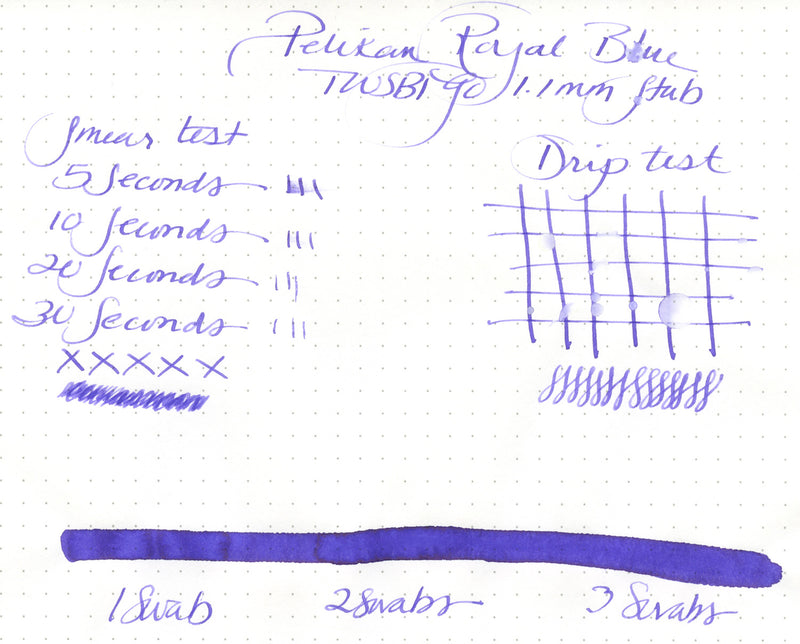 Pelikan Royal Blue
TWSBI go 1.1mm Stub
Smear test
5 Seconds
10 Seconds
20 Seconds
30 Seconds
X X X X X
Drip test
1 Swab
2 Swabs
3 Swabs